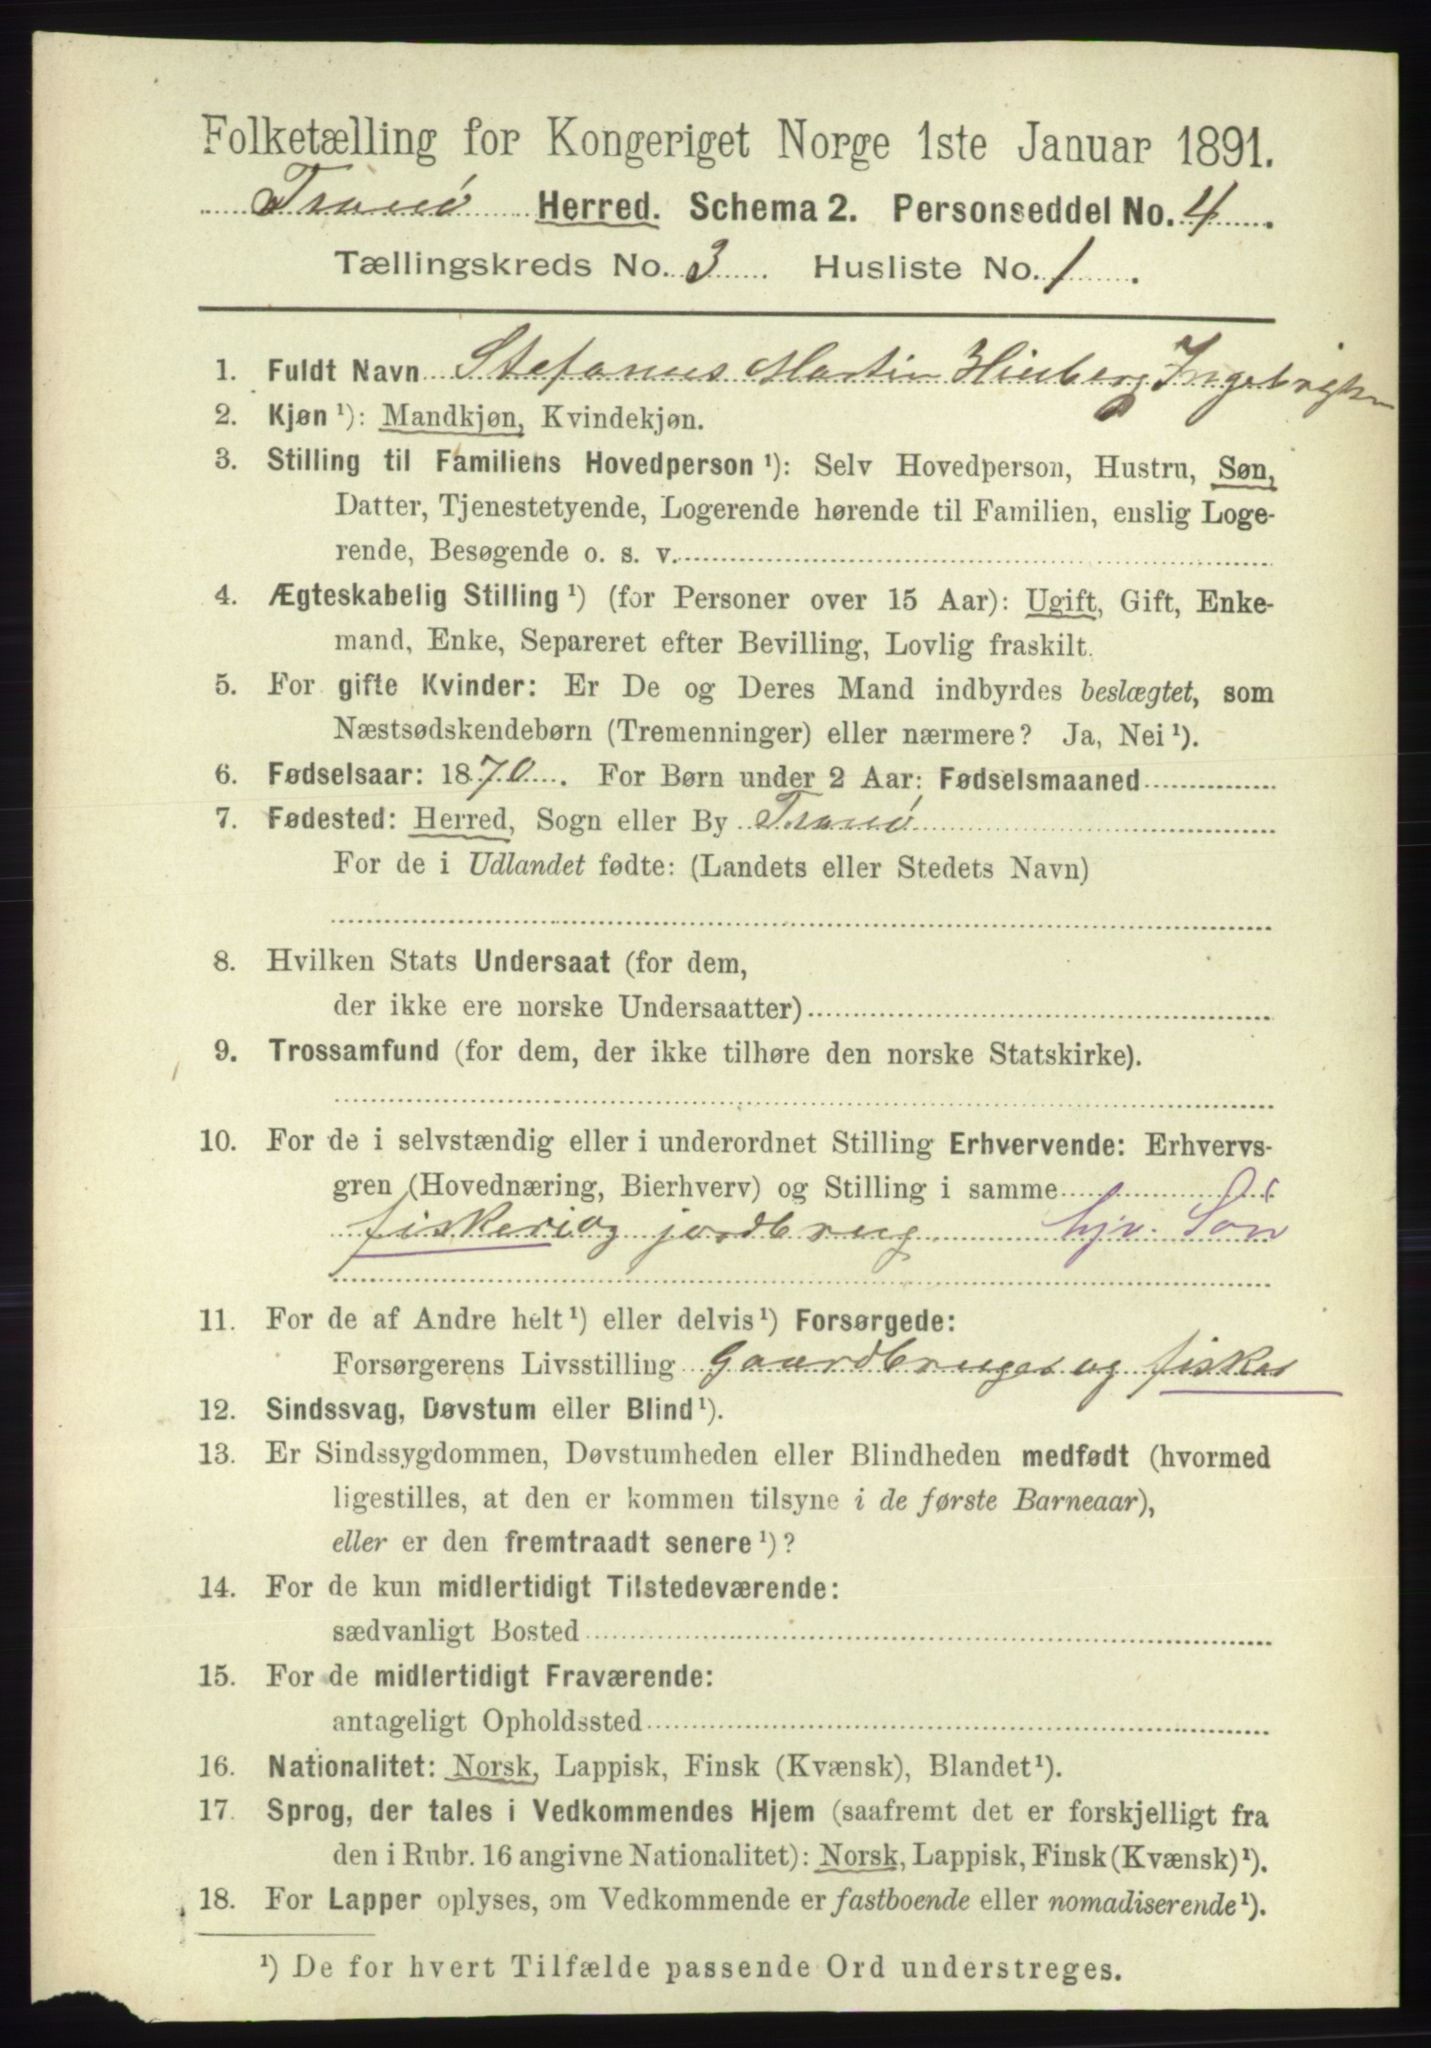 Folketælling for Kongeriget Norge 1ste Januar 1891.
Tranø Herred. Schema 2. Personseddel No. 4.
Tællingskreds No. 3. Husliste No. 1.
1. Fuldt Navn Stefanus Martin Hinberg Ingebrigtsen
2. Kjøn ¹): Mandkjøn, Kvindekjøn.
3. Stilling til Familiens Hovedperson ¹): Selv Hovedperson, Hustru, Søn,
Datter, Tjenestetyende, Logerende hørende til Familien, enslig Loge-
rende, Besøgende o. s. v.
4. Ægteskabelig Stilling ¹) (for Personer over 15 Aar): Ugift, Gift, Enke-
mand, Enke, Separeret efter Bevilling, Lovlig fraskilt.
5. For gifte Kvinder: Er De og Deres Mand indbyrdes beslægtet, som
Næstsødskendebørn (Tremenninger) eller nærmere? Ja, Nei ¹).
6. Fødselsaar: 1870. For Børn under 2 Aar: Fødselsmaaned
7. Fødested: Herred, Sogn eller By Tranø
For de i Udlandet fødte: (Landets eller Stedets Navn)
8. Hvilken Stats Undersaat (for dem,
der ikke ere norske Undersaatter)
9. Trossamfund (for dem, der ikke tilhøre den norske Statskirke).
10. For de i selvstændig eller i underordnet Stilling Erhvervende: Erhvervs-
gren (Hovednæring, Bierhverv) og Stilling i samme
fiskeri og jordbrug hjv. Søn
11. For de af Andre helt ¹) eller delvis ¹) Forsørgede:
Forsørgerens Livsstilling Gaardbruger og fisker
12. Sindssvag, Døvstum eller Blind ¹).
13. Er Sindssygdommen, Døvstumheden eller Blindheden medfødt (hvormed
ligestilles, at den er kommen tilsyne i de første Barneaar),
eller er den fremtraadt senere ¹)?
14. For de kun midlertidigt Tilstedeværende:
sædvanligt Bosted
15. For de midlertidigt Fraværende:
antageligt Opholdssted
16. Nationalitet: Norsk, Lappisk, Finsk (Kvænsk), Blandet ¹).
17. Sprog, der tales i Vedkommendes Hjem (saafremt det er forskjelligt fra
den i Rubr. 16 angivne Nationalitet): Norsk, Lappisk, Finsk (Kvænsk) ¹).
18. For Lapper oplyses, om Vedkommende er fastboende eller nomadiserende ¹).
¹) De for hvert Tilfælde passende Ord understreges.